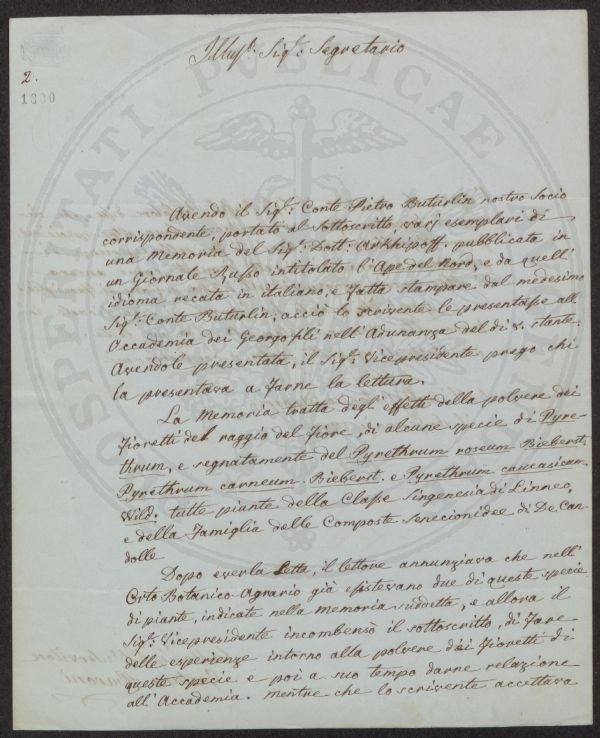 Illus.º Sig.r Segretario
2.
1300
PROSPERITATI PUBLICAE
Avendo il Sig.r Conte Pietro Buturlin nostro Socio
corrispondente, portato al Sottoscritto, varj esemplari di
una Memoria del Sig.r Dott. Arkhipoff, pubblicata in
un Giornale Russo intitolato l'Ape del Nord, e da quell'
idioma recata in italiano, e fatta stampare dal medesimo
Sig.r Conte Buturlin, acciò lo scrivente le presentasse all'
Accademia dei Georgofili nell'Adunanza del dì stante.
Avendole presentata, il Sig.r Vicepresidente prego chi
la presentava a farne la lettura.
La Memoria tratta degl'effetti della polvere dei
fioretti del raggio del fiore, di alcune specie di Pyre-
thrum, e segnatamente del Pyrethrum roseum Bieberst.
Pyrethrum carneum Bieberst. e Pyrethrum caucasicum
Wild. tutte piante della Classe Singenesia di Linneo,
e della Famiglia delle Composte Senecionidee di De Can-
dolle
Dopo averla Letta, il lettore annunziava che nell'
Orto Botanico-Agrario già esistevano due di queste specie
di piante, indicate nella memoria suddetta, e allora il
Sig.r Vicepresidente incombensò il sottoscritto, di fare
delle esperienze intorno alla polvere dei fioretti di
queste specie e poi a suo tempo darne relazione
all'Accademia. mentre che lo scrivente accettava